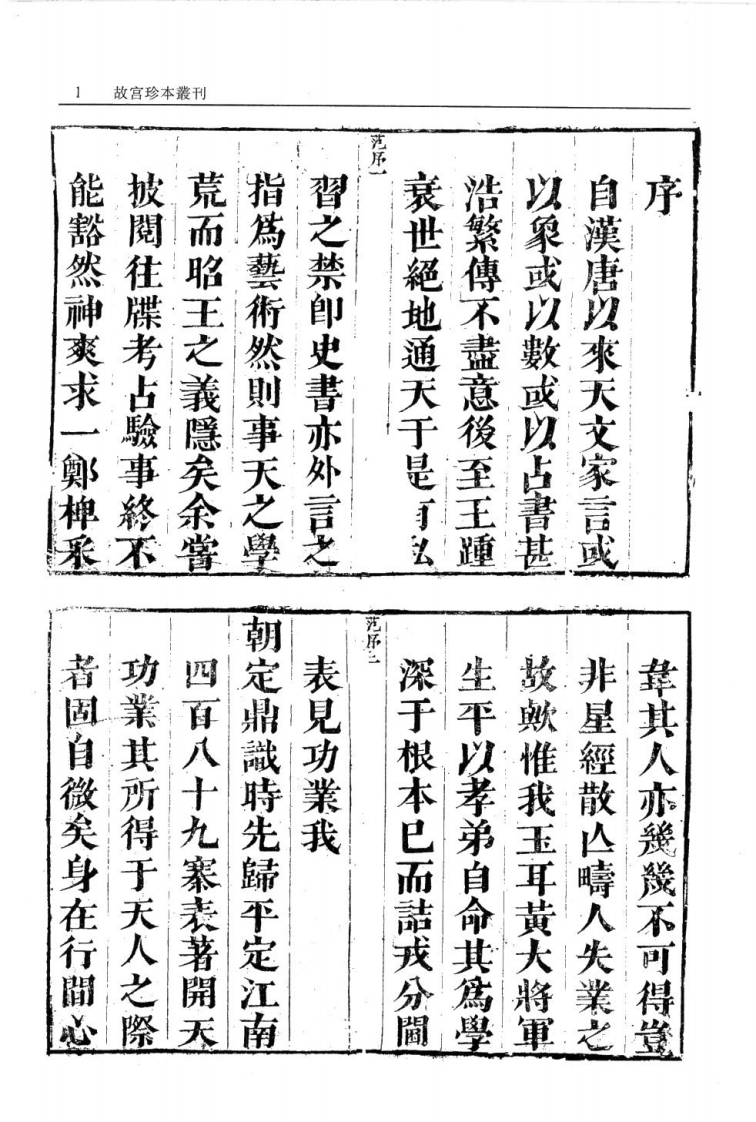 1 故宮珍本叢刊
序
自漢唐以來天文家言或
以象或以數或以占書甚
浩繁傳不盡意後至王踵
衰世絕地通天于是有私
范序一
習之禁卽史書亦外言之
指爲藝術然則事天之學
荒而昭王之義隱矣余嘗
披閱往牒考占驗事終不
能豁然神爽求一鄭椑釆
韋其人亦幾幾不可得豈
非星經散亾疇人失業之
故歟惟我玉耳黃大將軍
生平以孝弟自命其爲學
深于根本已而詰戎分閫
范序二
表見功業我
朝定鼎識時先歸平定江南
四百八十九寨表著開天
功業其所得于天人之際
者固自微矣身在行間心